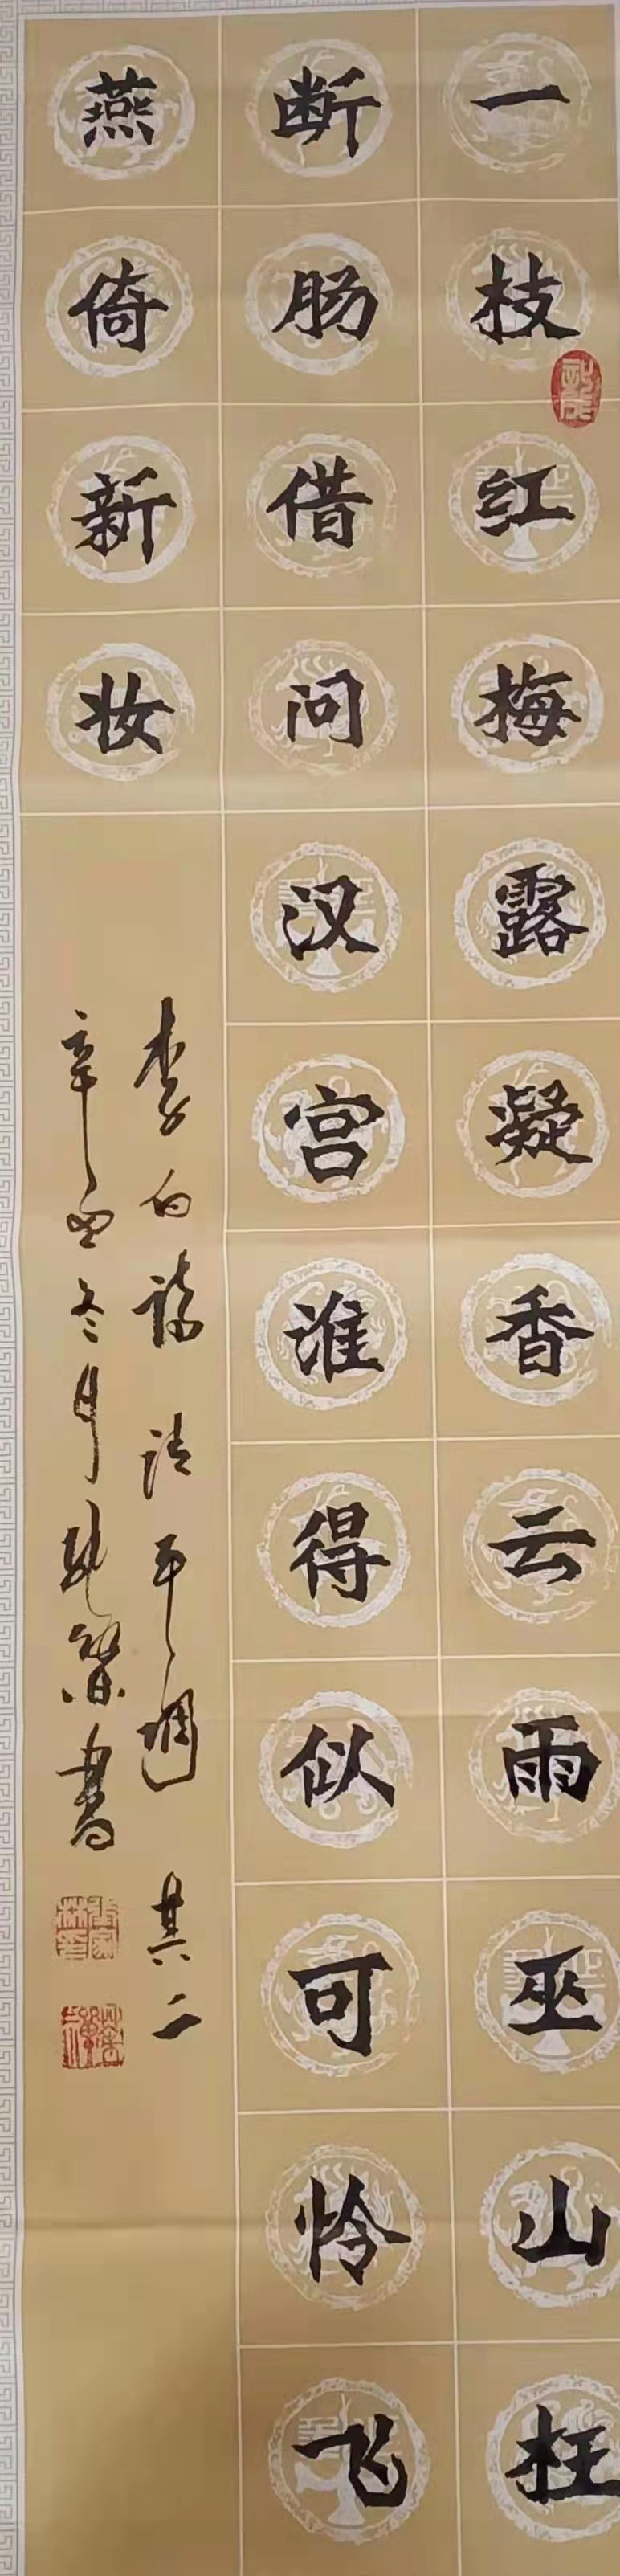 一枝红梅露凝香云雨巫山枉
断肠借问汉宫淮得似可怜飞
燕倚新妆
李白诗 清平调 其二
辛丑冬月书